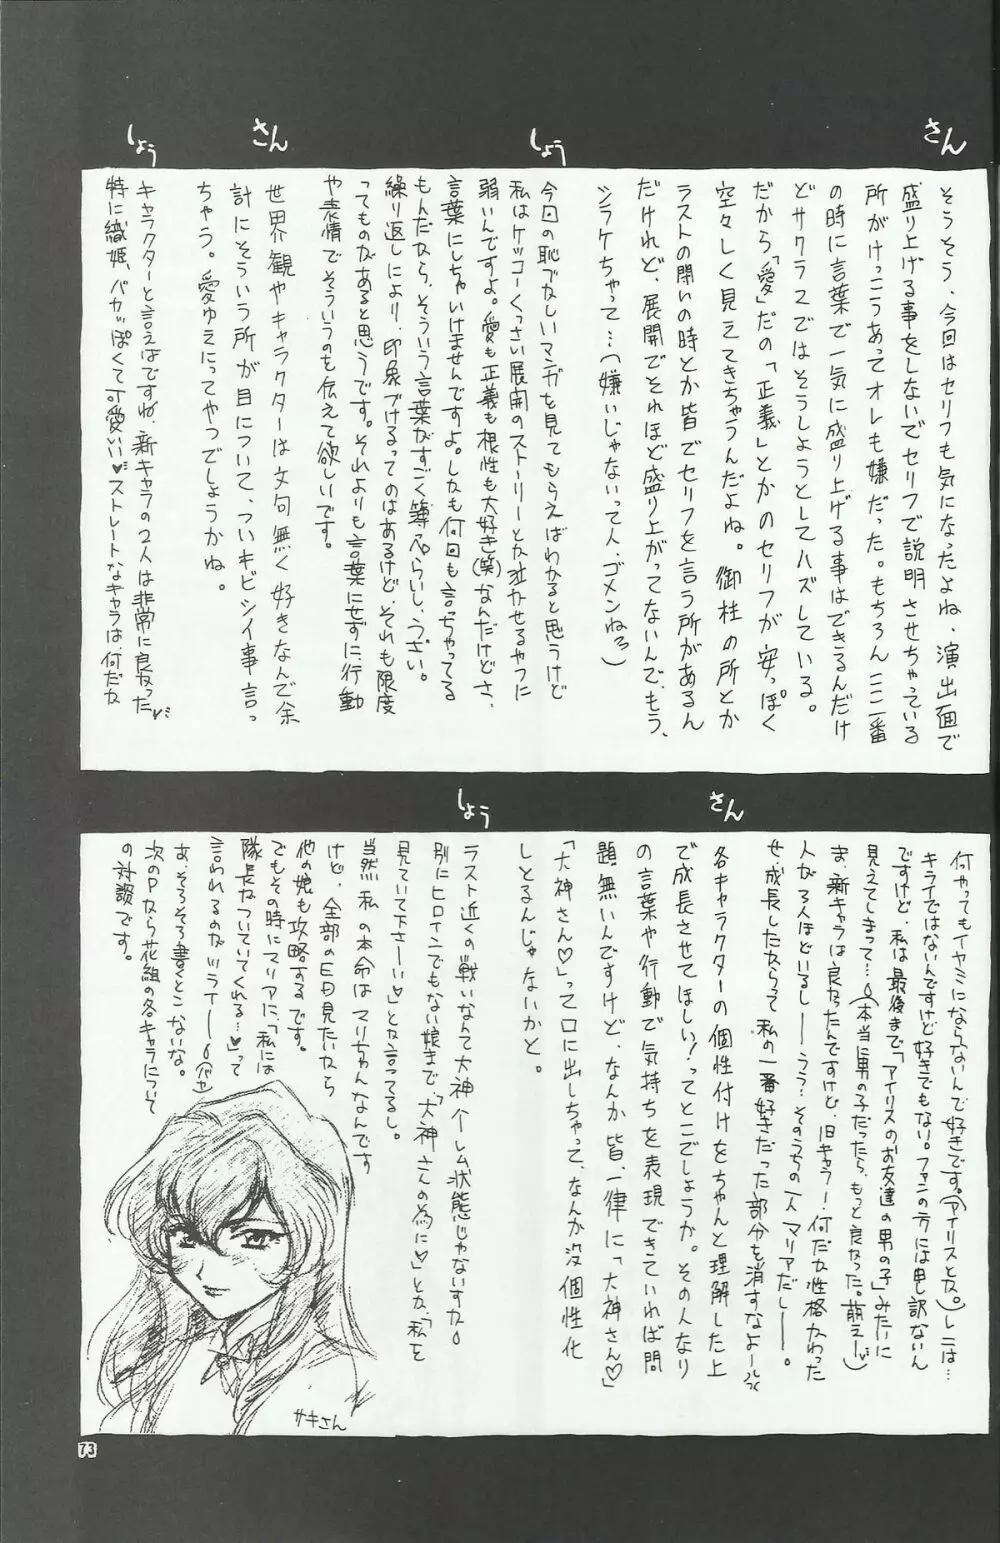 さん
そうそう、今回はセリフも気になったよね、演出面で
盛り上げる事をしないでセリフで説明させちゃっている
所がけっこうあってオレも嫌だった。もちろんここ一番
の時に言葉で一気に盛り上げる事はできるんだけ
どサクラ2ではそうしようとしてハズしている。
だから「愛」だの「正義」とかのセリフが安っぽく
空々しく見えてきちゃうんだよね。御柱の所とか
ラストの闘いの時とか皆でセリフを言う所があるん
だけれど、展開でそれほど盛り上がってないんで、もう、
シラケちゃって…(嫌いじゃないって人、ゴメンねっ)
しょう
今回の恥ずかしいマンガを見てもらえばわかると思うけど
私はケッコーくっさい展開のストーリーとか泣かせるやつに
弱いんですよ。愛も正義も根性も大好き(笑)なんだけどさ、
言葉にしちゃいけませんですよ。しかも何回も言っちゃってる
もんだから、そういう言葉がすごく薄っぺらいし、うざい。
繰り返しにより、印象づけるってのはあるけど、それも限度
ってものがあると思うです。それよりも言葉にせずに、行動
や表情でそういうのも伝えて欲しいです。
さん
世界観やキャラクターは文句無く好きなんで余
計にそういう所が目について、ついキビシイ事言っ
ちゃう。愛ゆえにってやつでしょうかね。
しょう
キャラクターと言えばですね、新キャラの2人は非常に良かった♥
特に織姫、バカっぽくて可愛い♥ストレートなキャラは、何だか
何やってもイヤミにならないんで好きです。(アイリスとか。)レニは…
キライではないんですけど好きでもない。ファンの方には申し訳ないん
ですけど、私は最後まで「アイリスのお友達の男の子」みたいに
見えてしまって…(本当に男の子だったら、もっと良かった。萌えー♥)
ま、新キャラは良かったんですけど、旧キャラー!何だか性格かわった
人が3人ほどいるしーーうう…そのうちの一人マリアだしーー。
せ、成長したからって私の一番好きだった部分を消すなよーっ
さん
各キャラクターの個性付けをちゃんと理解した上
で成長させてほしい!ってとこでしょうか。その人なり
の言葉や行動で気持ちを表現できていれば問
題無いんですけど、なんか皆、一律に「大神さん♡」
「大神さん♡」って口に出しちゃって、なんか没個性化
しとるんじゃないかと。
しょう
ラスト近くの戦いなんて大神ハーレム状態じゃないすか。
別にヒロインでもない娘まで、「大神さんの為に♡」とか、「私を
見ていて下さーい♡」とか言ってるし。
当然、私の本命はマリちゃんなんです
けど、全部のED見たいなら
他の娘も攻略するです。
でもその時にマリアに、「私には
隊長がついていてくれる…♥」って
言われるのがツライーー
あ、そろそろ書くとこないな。
次のPから花組の各キャラについて
の対談です。
サキさん
73